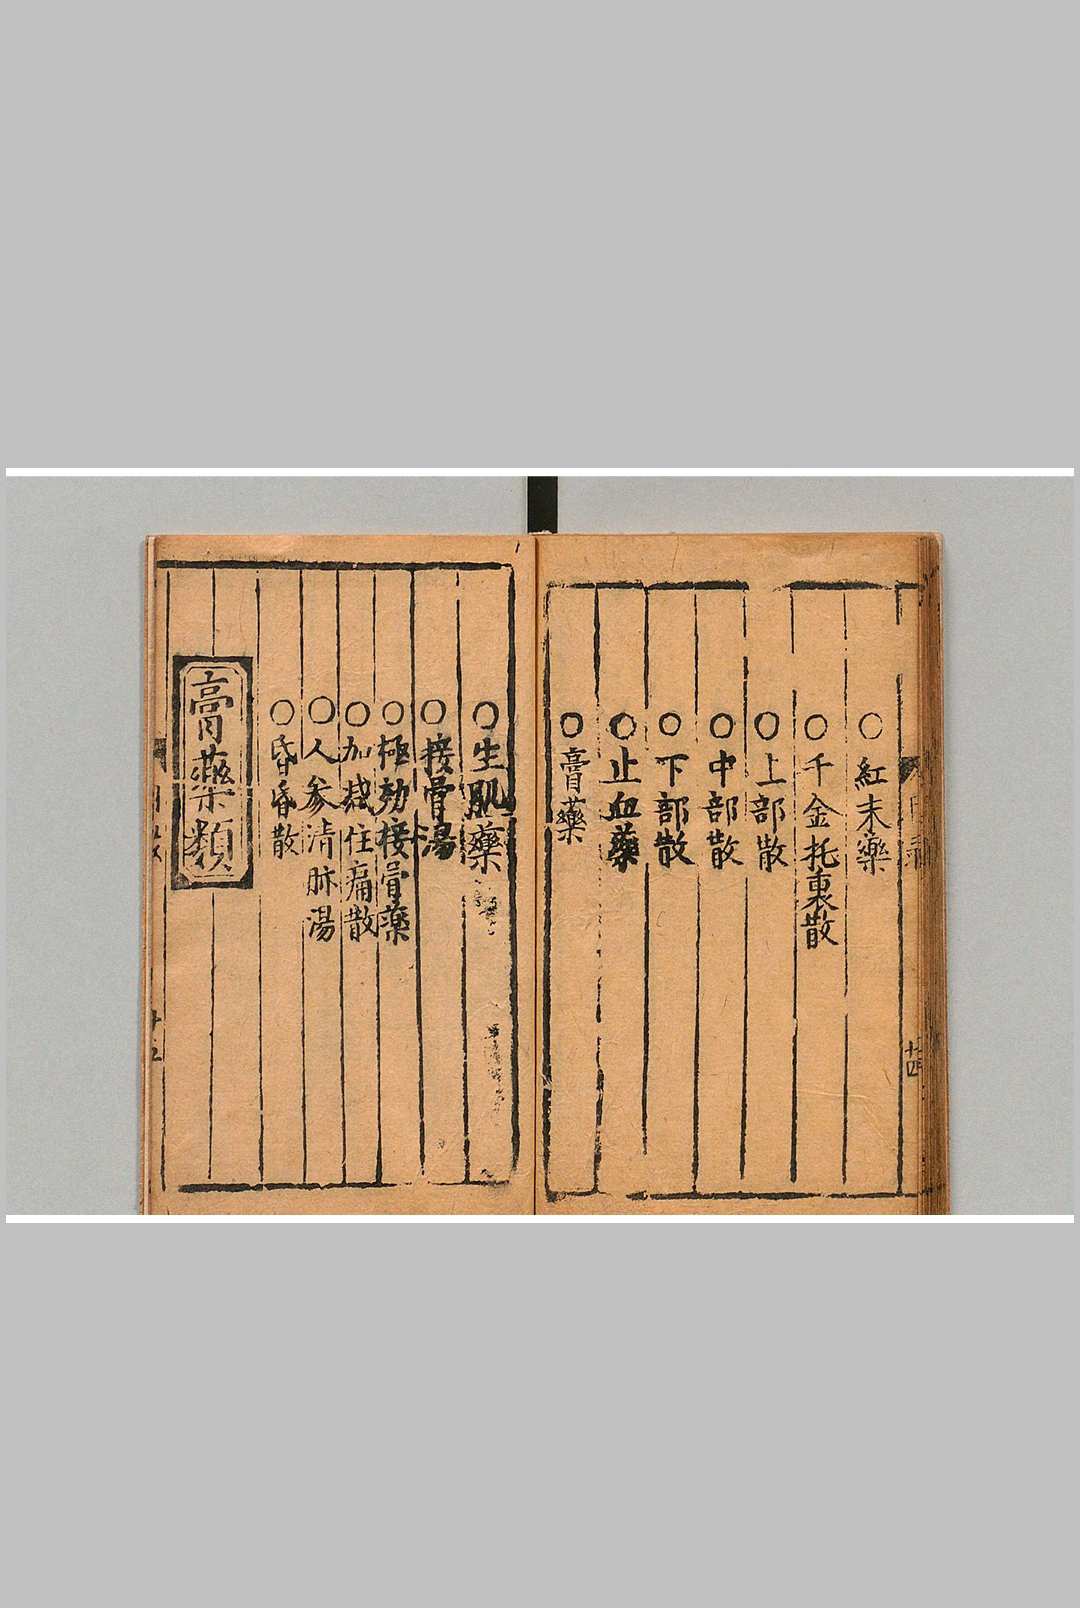 ○紅末藥
○千金托裏散
○上部散
○中部散
○下部散
○止血藥
○膏藥
十四
○生肌藥
○接骨湯
○極効接骨藥
○加減住痛散
○人參清脉湯
○昏昏散
膏藥類